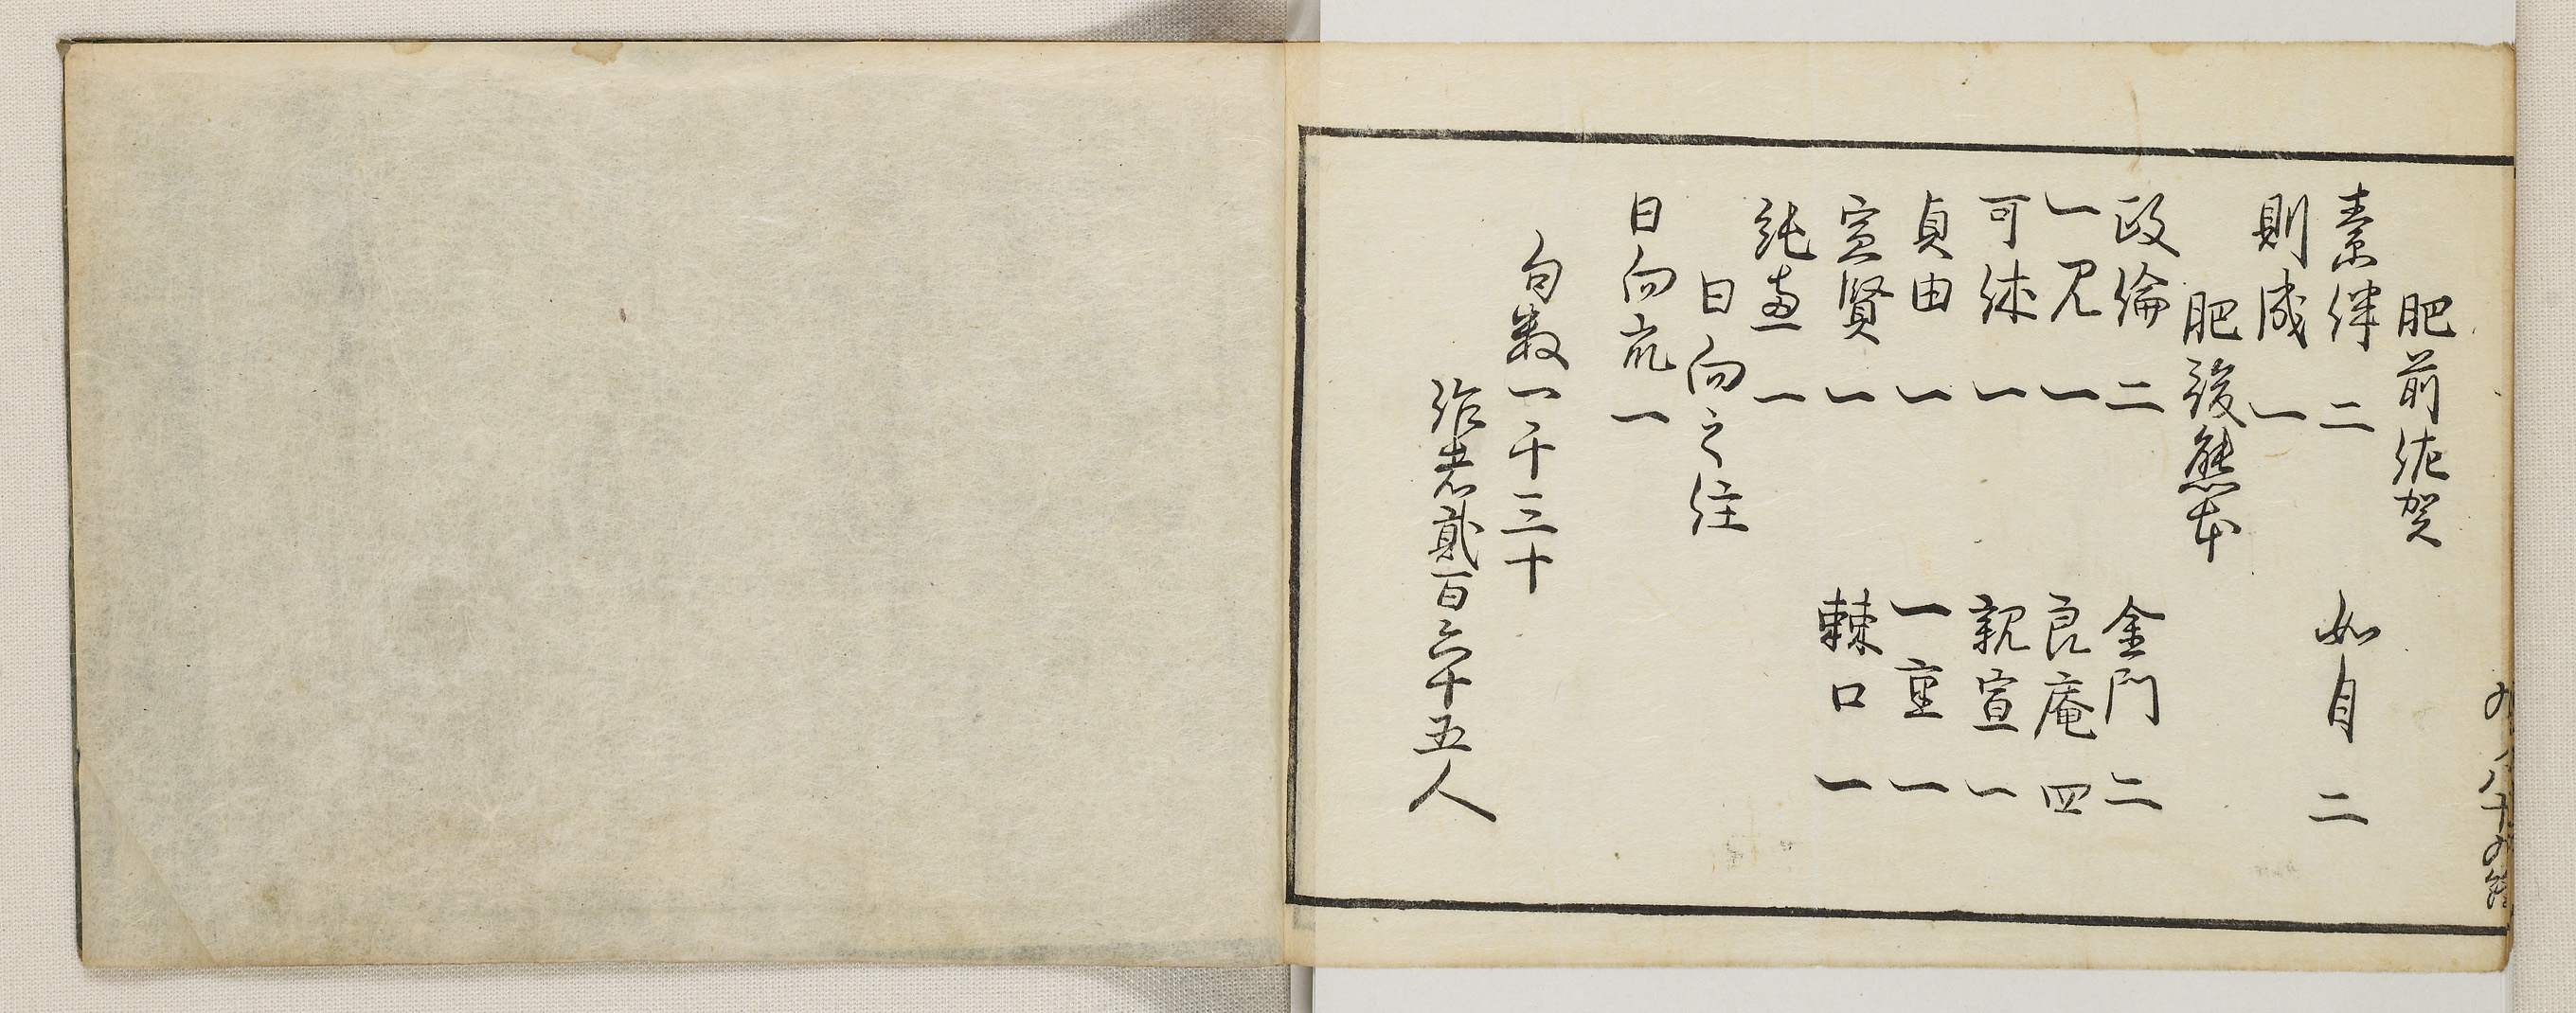 肥前佐賀
素律 二 如自 二
則成 一
肥後熊本
政倫 二 金門 二
一見 一 良庵 四
可怵 一 親宣 一
貞由 一 一重 一
宣賢 一 棘口 一
純 一
日向之住
日向 一
句数一千三十
作者貮百六十五人